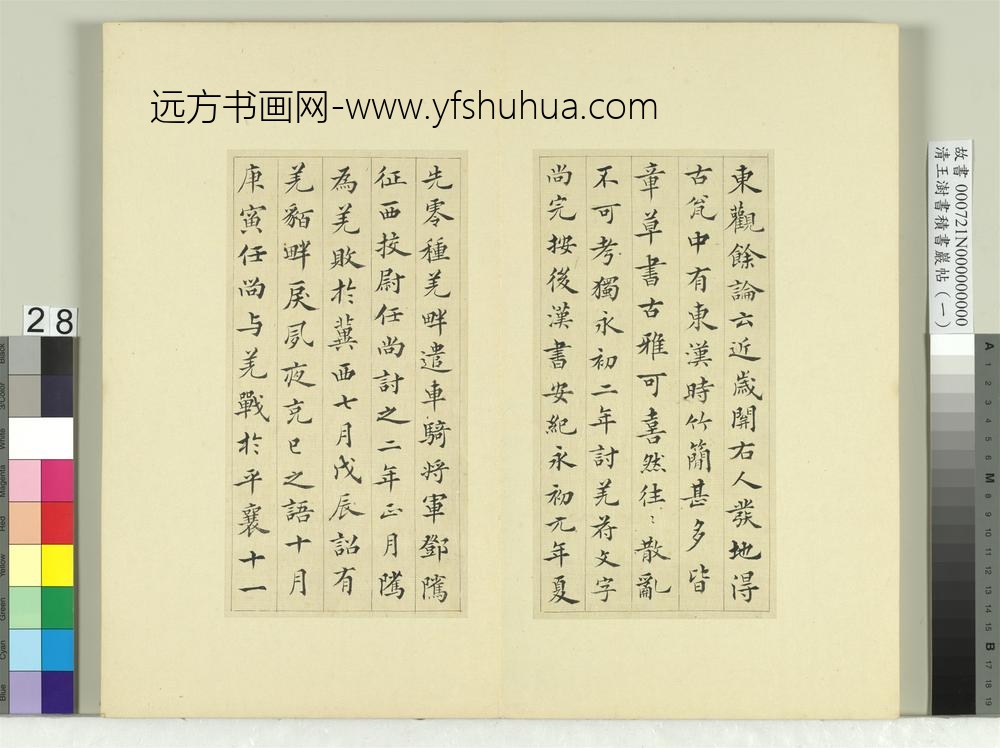 远方书画网-www.yfshuhua.com
東觀餘論云近歲關右人發地得
古瓮中有東漢時竹簡甚多皆
章草書古雅可喜然往〻散亂
不可考獨永初二年討羌符文字
尚完按後漢書安紀永初元年夏
先零種羌畔遣車騎将軍鄧隲
征西挍尉任尚討之二年正月隲
為羌敗於冀西七月戊辰詔有
羌貊畔戾夙夜克己之語十月
庚寅任尚与羌戰於平襄十一
28
故書 000721N000000000
清王澍書積書巖帖（一）
Black
3/Color
White
Magenta
Red
Yellow
Green
Cyan
Blue
A
1
2
3
4
5
6
M
8
9
10
11
12
13
14
15
B
17
18
19